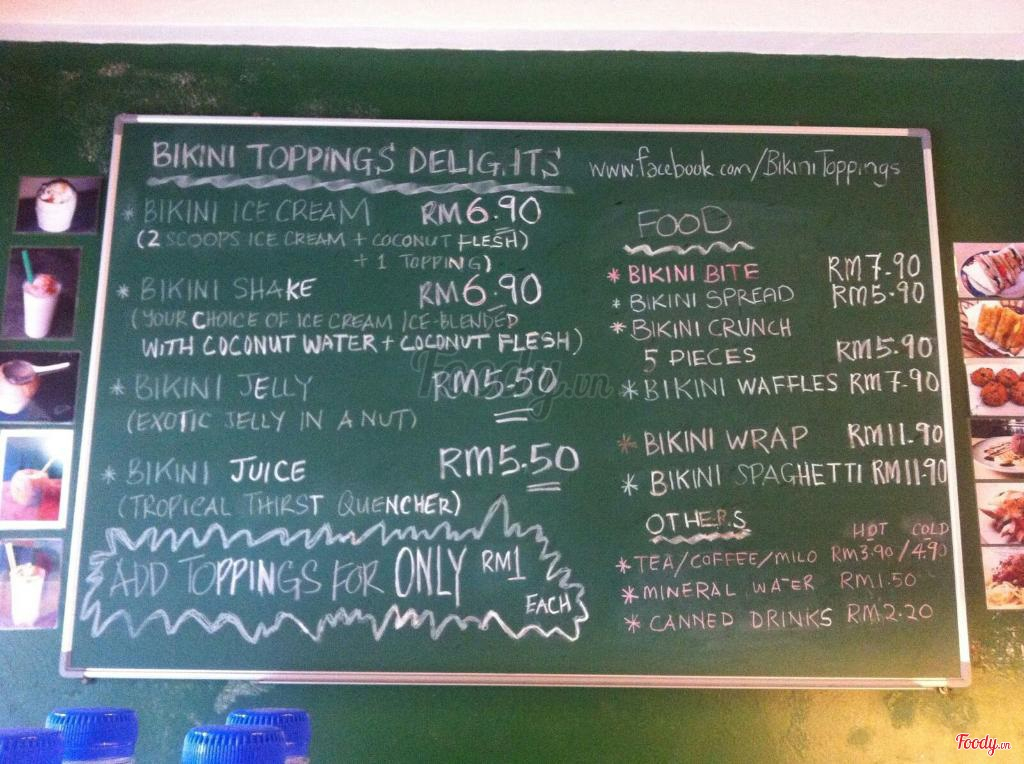 BIKINI TOPPINGS DELIGHTS
* BIKINI ICE CREAM RM6.90
(2 SCOOPS ICE CREAM + COCONUT FLESH)
+ 1 TOPPING)
* BIKINI SHAKE RM6.90
(YOUR CHOICE OF ICE CREAM ICE-BLENDED
WITH COCONUT WATER + COCONUT FLESH)
* BIKINI JELLY RM5.50
(EXOTIC JELLY IN A NUT)
* BIKINI JUICE RM5.50
(TROPICAL THIRST QUENCHER)
ADD TOPPINGS FOR ONLY RM1
EACH
www.facebook.com/BikiniToppings
FOOD
* BIKINI BITE RM7.90
* BIKINI SPREAD RM5.90
* BIKINI CRUNCH
5 PIECES RM5.90
* BIKINI WAFFLES RM7.90
* BIKINI WRAP RM11.90
* BIKINI SPAGHETTI RM11.90
OTHERS
HOT COLD
* TEA/COFFEE/MILO RM3.90/4.90
* MINERAL WATER RM1.50
* CANNED DRINKS RM2.20
Foody.vn
Foody.vn